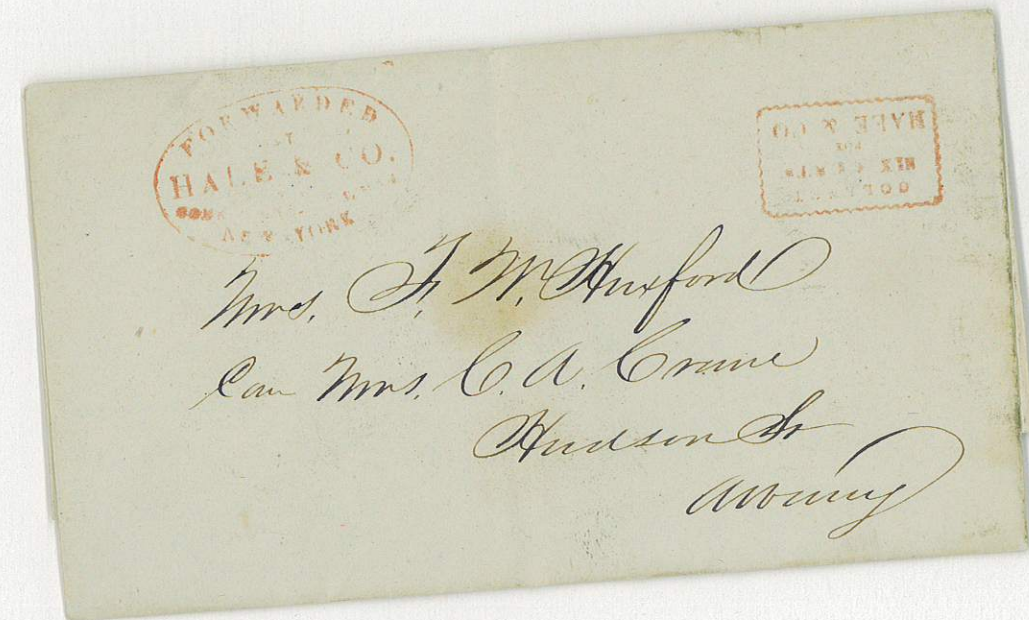 FORWARDED
HALE & CO.
NEW YORK
HALE & CO
SIX CENTS
Mrs. F. M. Huxford
Care Mrs. C. A. Crane
Hudson St
Albany